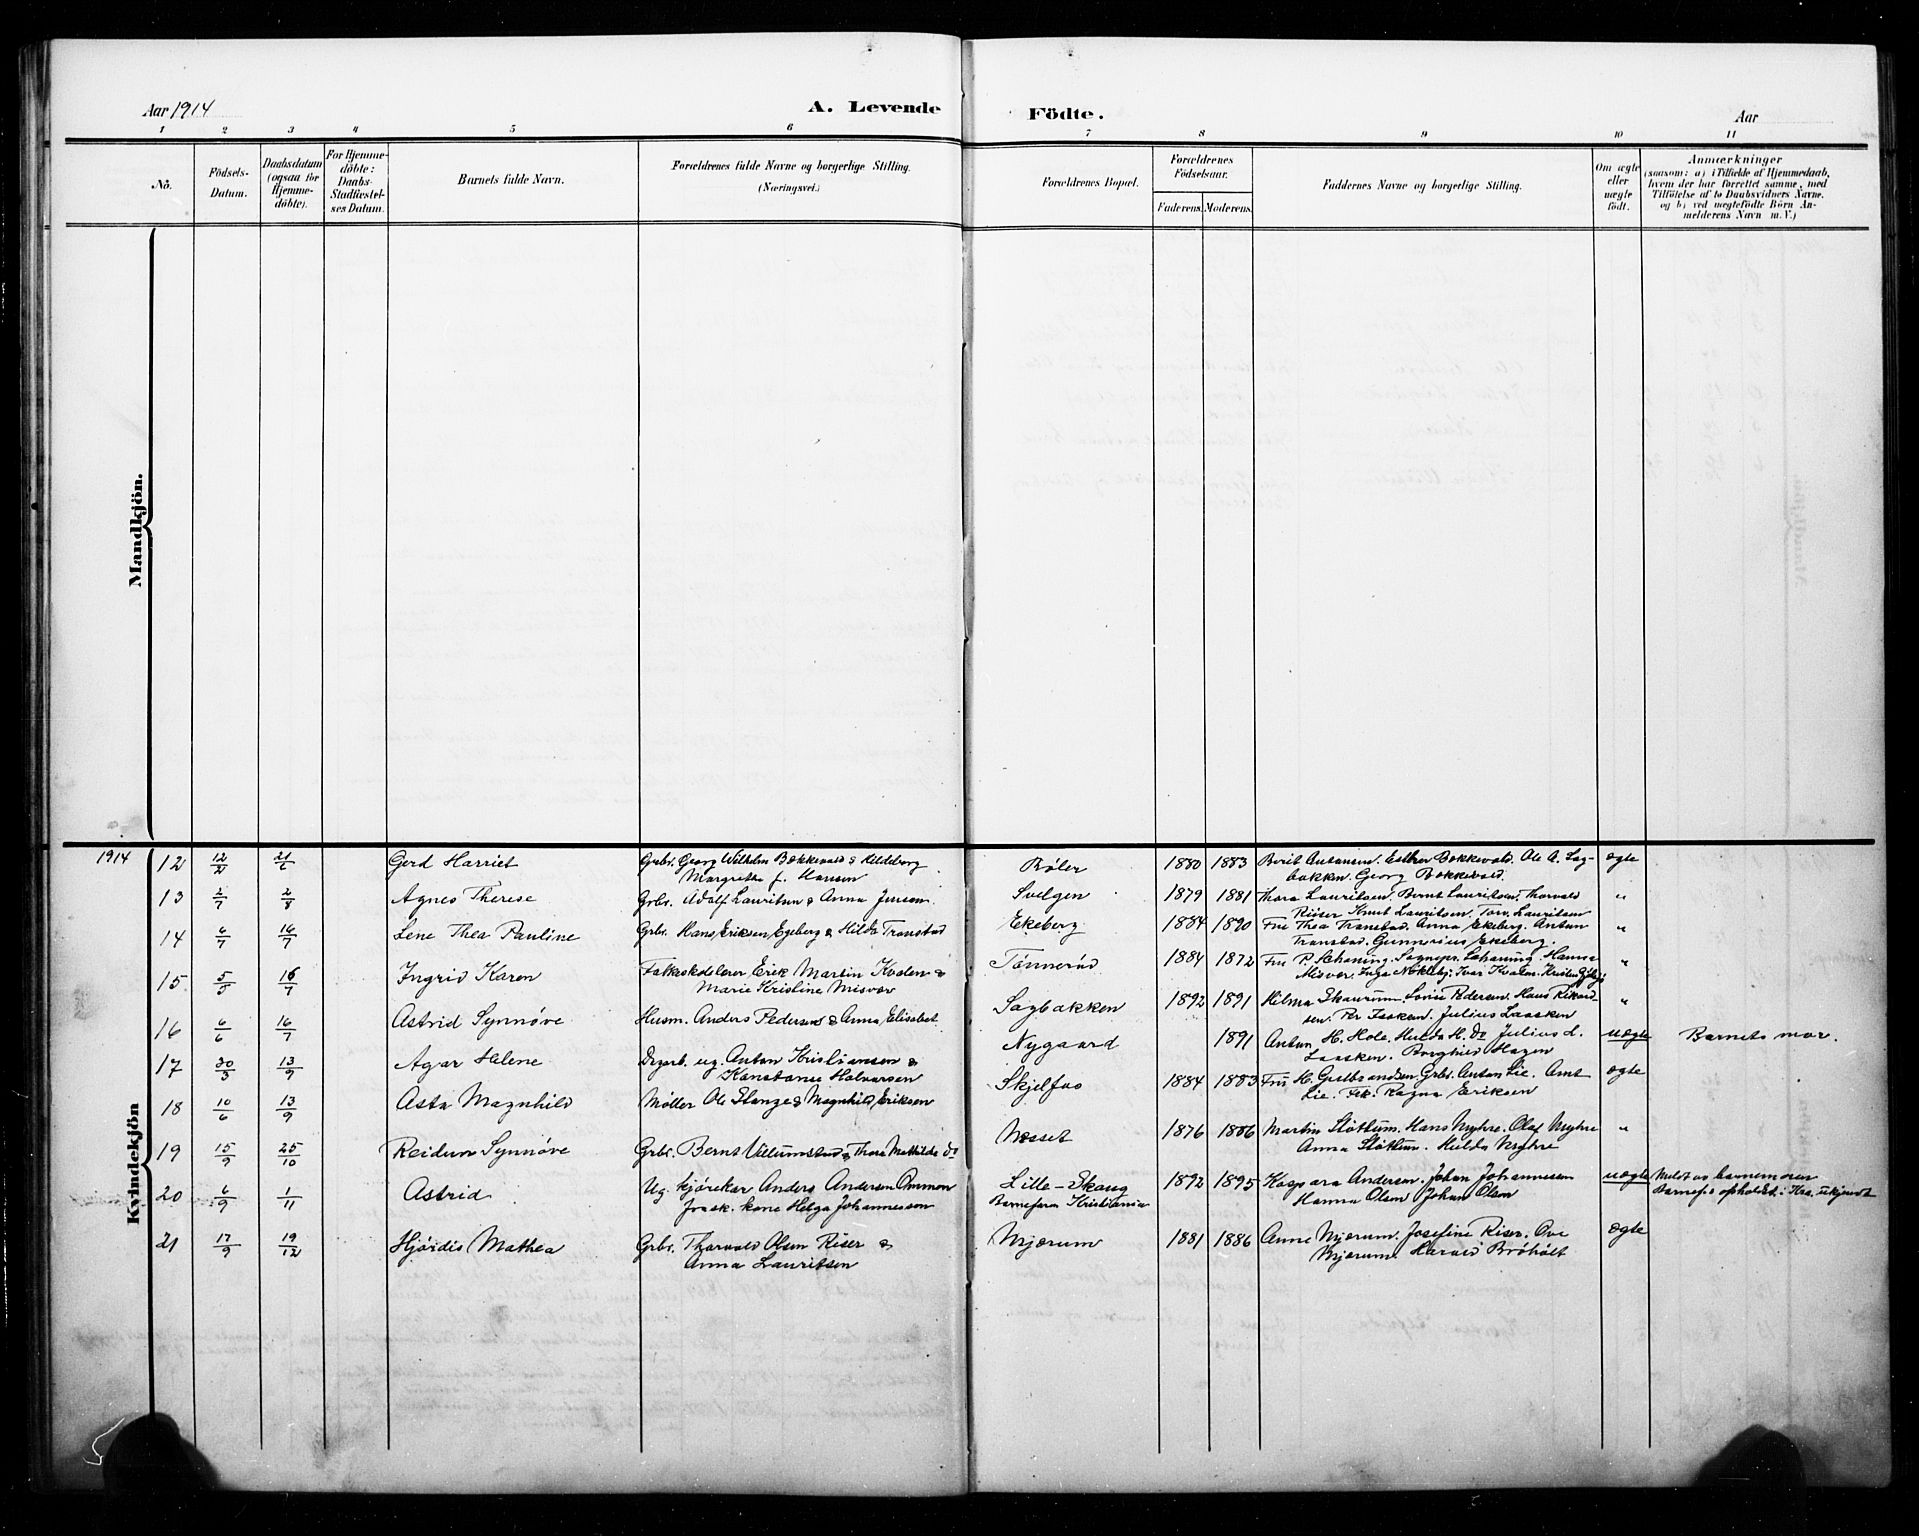 Aar 1914 A. Levende Födte. Aar
1 2 3 4 5 6 7 8 9 10 11
No. Födsels-Datum. Daabsdatum (ogsaa for Hjemme-döbte). For Hjemme-döbte: Daabs-Stadfæstel-ses Datum. Barnets fulde Navn. Forældrenes fulde Navne og borgerlige Stilling. (Næringsvei.) Forældrenes Bopæl. Forældrenes Födselsaar. Faderens. Moderens. Faddernes Navne og borgerlige Stilling. Om ægte eller uægte födt. Anmærkninger (saasom: a) i Tilfælde af Hjemmedaab, hvem der har forrettet samme, med Tilföielse af to Daabsvidners Navne, og b) ved uægtefödte Börn An-melderens Navn m. V.)
Mandkjön.
Kvindekjön
1914 12 12/2 21/ Gerd Harriet Grbr. Georg Wilhelm Bakkevold & Hildeborg Røler 1880 1883 Berit Antonsen. Esther Bakkevold. Ole A. Sag- ægte
Margrethe f. Hansen bakken. Georg Bakkevold.
13 2/7 2/8 Agnes Therese Grbr. Adolf Lauritsen & Anna Jensen Svelgen 1879 1881 Thora Lauritsen. Bernt Lauritsen. Thorvald "
Riiser Knut Lauritsen. Torv. Lauritsen
14 6/7 16/7 Lene Thea Pauline Grbr. Hans Eriksen Egeberg & Hilda Transtad Ekeberg 1884 1890 Fru Thea Transtad. Anna Ekeberg. Anton "
Transtad. Gunnerius Ekeberg.
15 5/5 16/7 Ingrid Karen Folkskolelærer Erik Martin Kvalen & Tønnerud 1884 1872 Fru P. Schaning. Sogнepr. Schaning. Hanna "
Marie Kristine Misvær Misvær. Inga Nøkleby. Ivar Kvalem.
16 6/6 16/7 Astrid Synnøve Husm. Anders Pedersen & Anna Elisabet Sagbakken 1892 1891 Hilma Skaurum. Lovise Pedersen. Hans Rikard- "
sen. Per Laasken. Julius Laasken
17 30/3 13/9 Agar Helene Dagarb. ug. Anton Kristiansen & Nygaard 1891 Anton H. Hole. Hulda H. Do Julius L. uægte Barnets mor.
Konstanse Halvorsen Laasken. Borghild Hagen
18 10/6 13/9 Asta Magnhild Møller Ole Stange & Magnhild Eriksen Skjelfos 1884 1883 Fru H. Gulbrandsen. Grbr. Anton Lie. Amt ægte
Lie. Frk. Ragna Eriksen
19 15/9 25/10 Reidun Synnøve Grbr. Bernt Villumstad & Thora Mathilde do Næsset 1876 1886 Martin Sløttum. Hans Myhre. Olaf Myhre "
Anna Sløttum. Hulda Myhre
20 6/9 1/11 Astrid Ug. kjørekar Anders Andersen Ommon Lille-Skaug 1892 1895 Kaspara Andersen. Johan Johannessen uægte Meldt av barnemoren
frask. kone Helga Johannessen Barnefaren Kristiania Hanna Olsen Johan Olsen Barnef.s opholdst. i Kra. ukjendt
21 17/9 19/12 Hjördis Mathea Grbr. Thorvald Olsen Riser & Mjærum 1881 1886 Anne Mjærum. Josefine Riser. Ove ægte
Anna Lauritsen Mjærum. Harald Brøholt